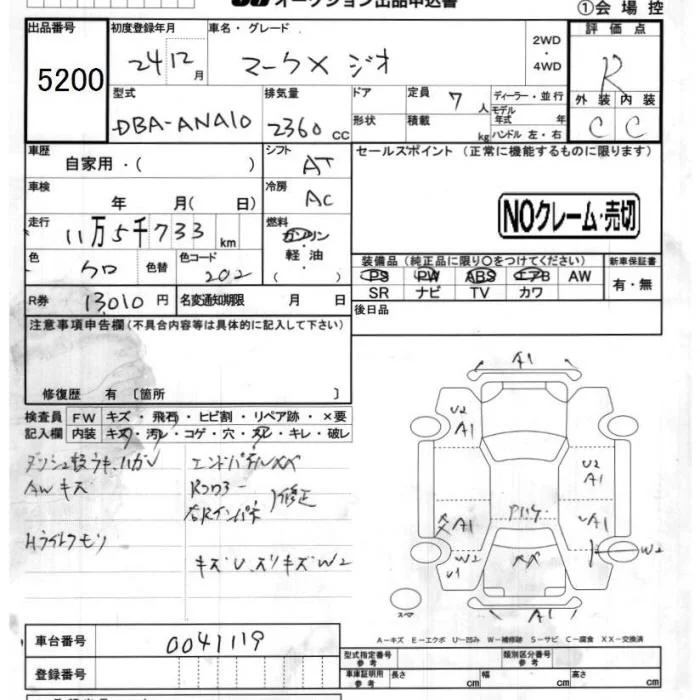 オークション出品申込書
①会場控
出品番号
5200
初度登録年月
24 12月
車名・グレード
マークX ジオ
2WD・4WD
評価点
R
外装 内装
C C
型式
DBA-ANA10
排気量
2360 CC
ドア
形状
定員 7人
積載 kg
ディーラー・並行
モデル年式 年
ハンドル 左・右
車歴
自家用・( )
シフト
AT
セールスポイント (正常に機能するものに限ります)
車検
年 月( 日)
冷房
AC
NOクレーム・売切
走行
11万5千733 km
燃料
ガソリン
軽・油
( )
色
クロ
色替
色コード
202
装備品 (純正品に限り〇をつけてください)
新車保証書
PS PW ABS エアB AW
SR ナビ TV カワ
有・無
R券
13,010円
名変通知期限 月 日
後日品
注意事項申告欄(不具合内容等は具体的に記入して下さい)
修復歴 有〔箇所 〕
検査員記入欄
FW キズ・飛石・ヒビ割・リペア跡・×要
内装 キズ・汚レ・コゲ・穴・スレ・キレ・破レ
AWキズ
エンドパネルXX
Rフロアー
右Rインパネ
修正
Hライトクモリ
キズU.スリキズW2
A1
U2
A1
U2
A1
A1
A1
W2
U1
W2
A1
スペア
A−キズ E−エクボ U−凹み W−補修跡 S−サビ C−腐食 XX−交換済
車台番号
0041119
登録番号
型式指定番号 参考
類別区分番号 参考
車庫証明用 参考
長さ cm 幅 cm 高さ cm